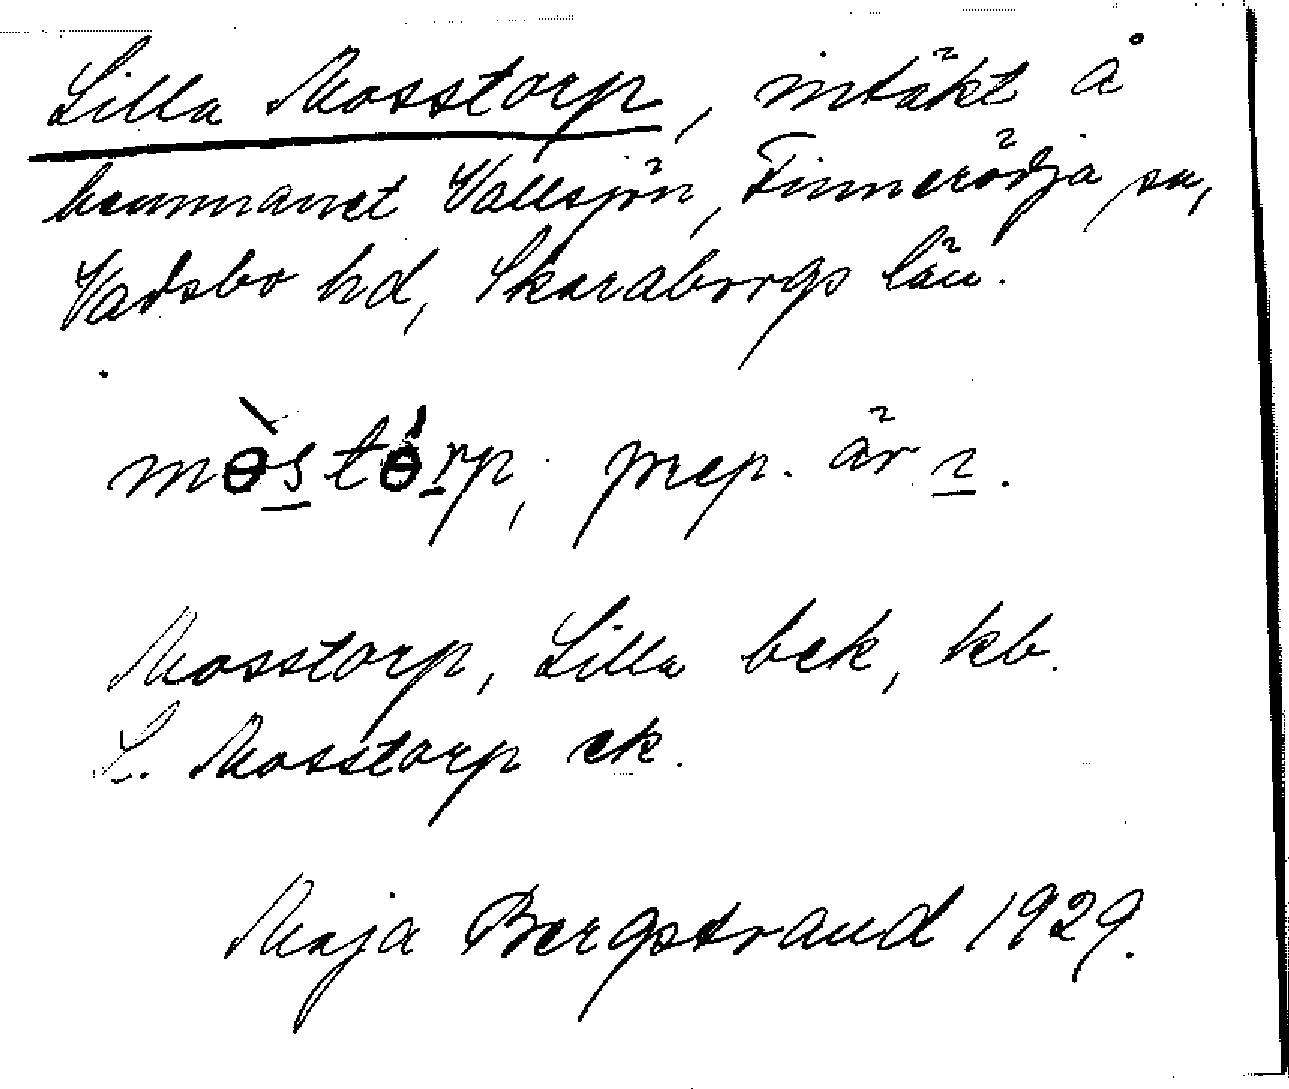 Lilla Mosstorp, intäkt å
hemmanet Vallsjön, Finnerödja sn,
Vadsbo hd, Skaraborgs län.
mɵ̀stɵ́rp, prep. är ı.
Mosstorp, Lilla bek, kb.
L. Mosstorp ek.
Maja Bergstrand 1929.